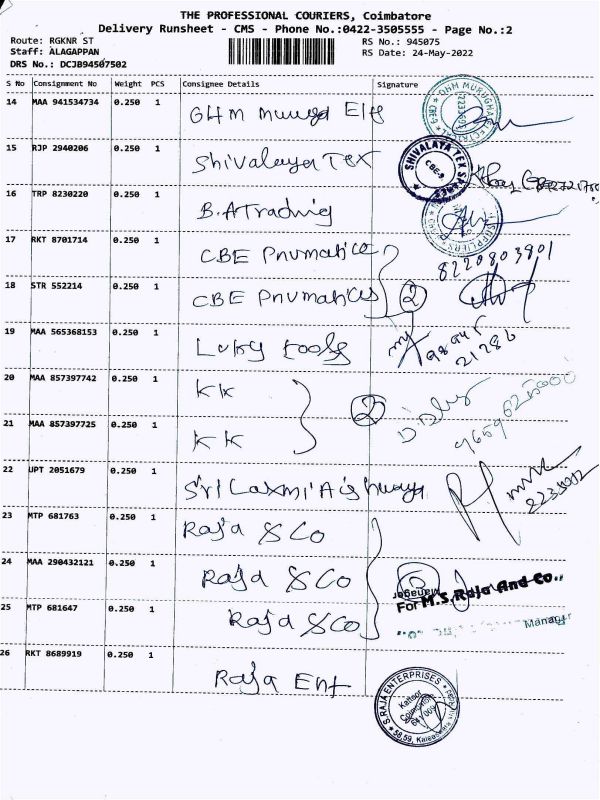 THE PROFESSIONAL COURIERS, Coimbatore
Delivery Runsheet - CMS - Phone No.:0422-3505555 - Page No.:2
Route: RGKNR ST RS No.: 945075
Staff: ALAGAPPAN RS Date: 24-May-2022
DRS No.: DCJB94507502
S No Consignment No Weight PCS Consignee Details Signature
14 MAA 941534734 0.250 1 OHM Muruga Ele
15 RJP 2940206 0.250 1 Shivalaya Tex
SHIVALAYA TEX SPARES CBE-9
16 TRP 8230220 0.250 1 B.A Trading
17 RKT 8701714 0.250 1 CBE Pnumatics
8220803801
18 STR 552214 0.250 1 CBE Pnumatics 2
19 MAA 565368153 0.250 1 Luky tools
21286
20 MAA 857397742 0.250 1 KK
2
21 MAA 857397725 0.250 1 KK
22 UPT 2051679 0.250 1 Sri Laxmi Aishwarya
23 MTP 681763 0.250 1 Raja & Co
24 MAA 290432121 0.250 1 Raja & Co
Manager
For M.S.Raja And Co.,
25 MTP 681647 0.250 1 Raja & Co
Manager
26 RKT 8689919 0.250 1 Raja Ent
S.RAJA ENTERPRISES
Kattoor
Coimbatore
641 009
58,59,